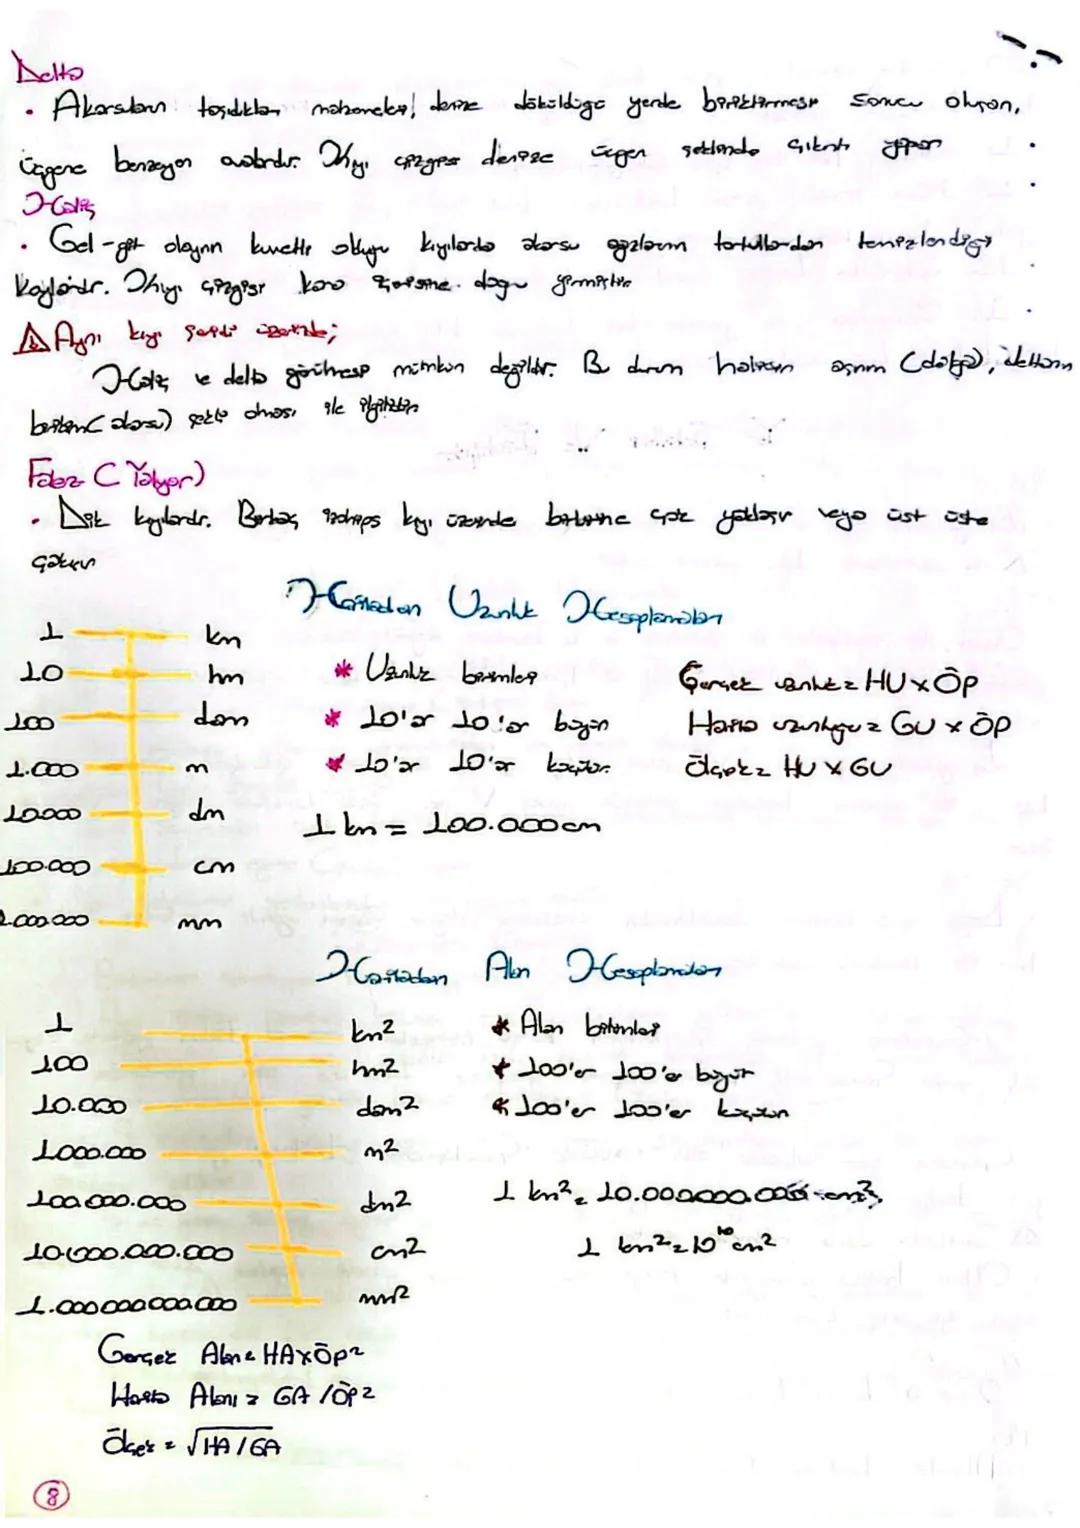 Delta
• Akarsuların taşıdıkları malzemeleri denize döküldüğü yerde biriktirmesi sonucu oluşan,
üçgene benzeyen ovalardır. Kıyı çizgisi denize üçgen şeklinde çıkıntı yapar
Haliç
• Gel-git olayının kuvvetli olduğu kıyılarda akarsu ağızlarının tortullardan temizlendiği
koylardır. Kıyı çizgisi kara içerisine doğru girmiştir
Aynı kıyı şeridi üzerinde;
Haliç ve delta görülmesi mümkün değildir. Bu durum halicin aşınım (dalga), deltanın
birikim (akarsu) şekli olması ile ilgilidir
Falez (Yalıyar)
• Dik kıyılardır. Birkaç izohips kıyı üzerinde birbirine çok yaklaşır veya üst üste
çakışır
Haritadan Uzunluk Hesaplamaları
1 km
10 hm
100 dam
1.000 m
10.000 dm
100.000 cm
1.000.000 mm
* Uzunluk birimleri
* 10'ar 10'ar büyür
* 10'ar 10'ar küçülür.
1 km = 100.000 cm
Gerçek uzunluk = HU x ÖP
Harita uzunluğu = GU x ÖP
Ölçek = HU x GU
Haritadan Alan Hesaplamaları
1 km²
100 hm²
10.000 dam²
1.000.000 m²
100.000.000 dm²
10.000.000.000 cm²
1.000.000.000.000 mm²
* Alan birimleri
* 100'er 100'er büyür
* 100'er 100'er küçülür
1 km² = 10.000.000.000 cm²
1 km² = 10¹⁰ cm²
Gerçek Alan = HA x ÖP²
Harita Alanı = GA / ÖP²
Ölçek = √HA / GA
8